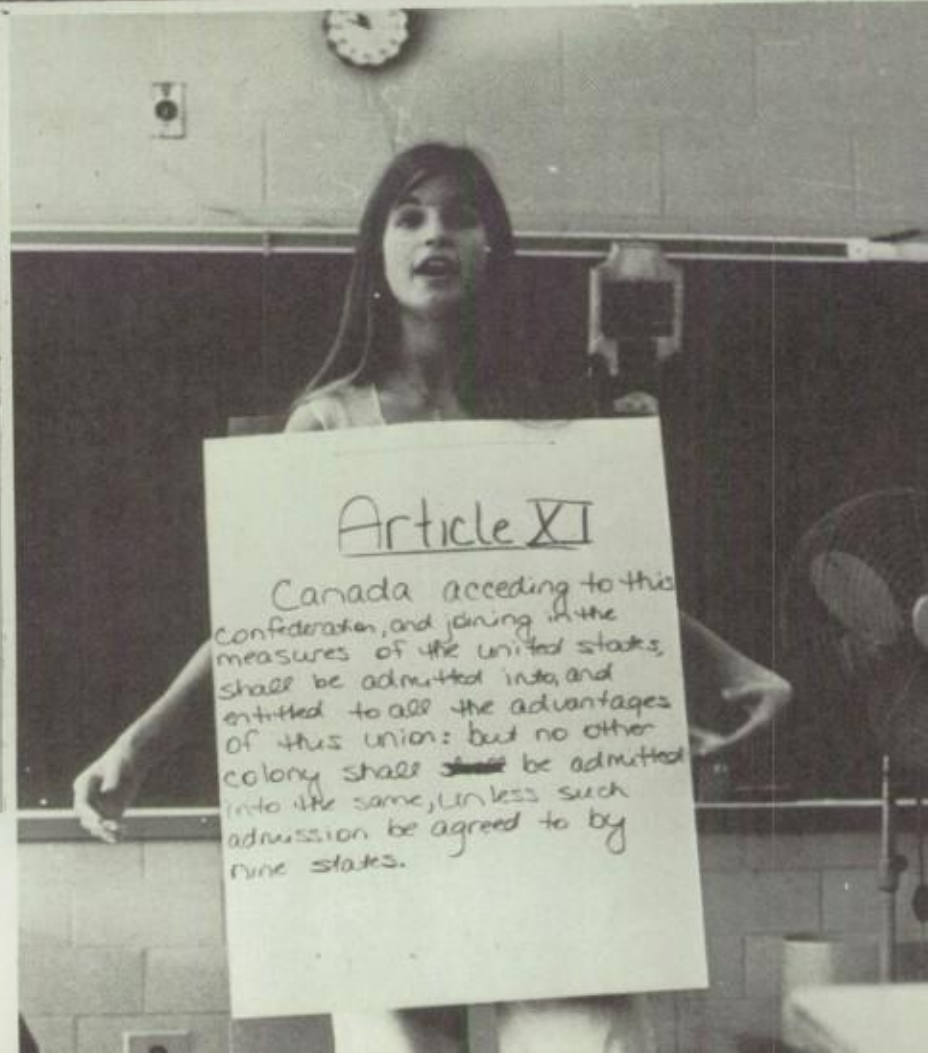 Article XI
Canada acceding to this
confederation, and joining in the
measures of the united states,
shall be admitted into, and
entitled to all the advantages
of this union: but no other
colony shall be admitted
into the same, unless such
admission be agreed to by
nine states.